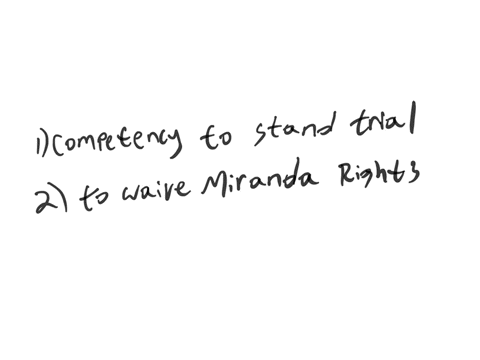 1) Competency to stand trial
2) to waive Miranda Rights